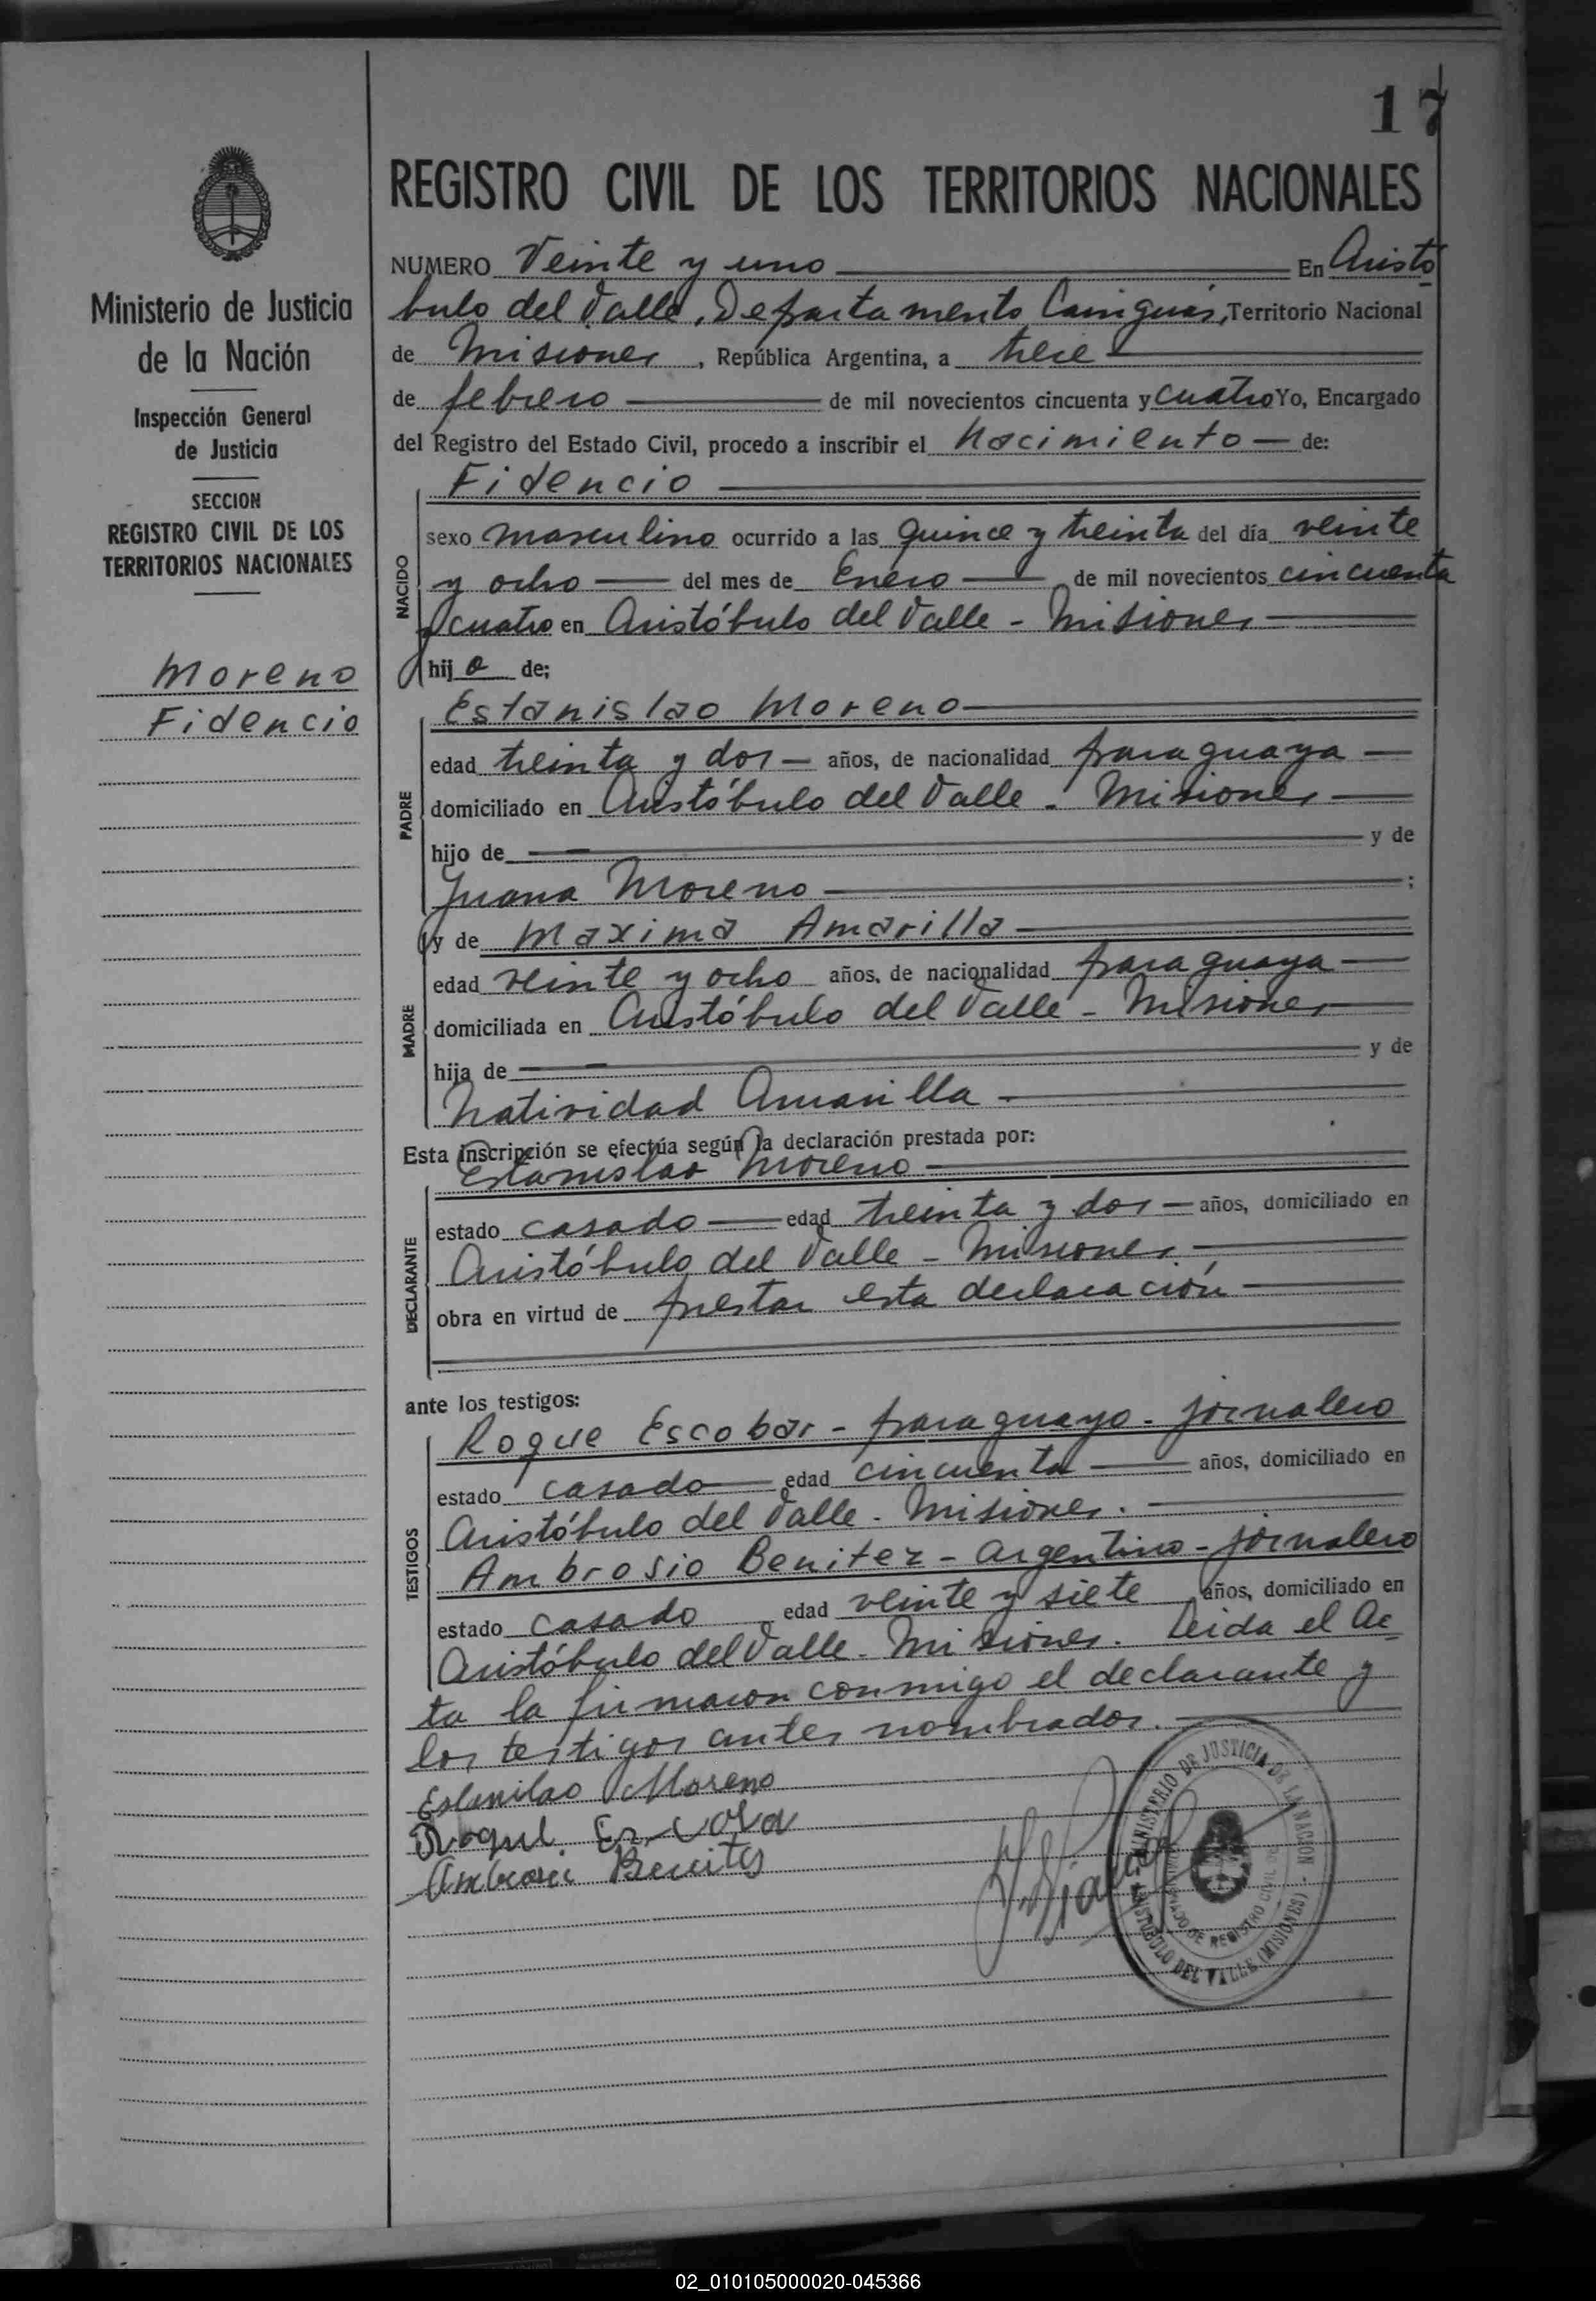 17
REGISTRO CIVIL DE LOS TERRITORIOS NACIONALES
Ministerio de Justicia
de la Nación
Inspección General
de Justicia
SECCION
REGISTRO CIVIL DE LOS
TERRITORIOS NACIONALES
Moreno
Fidencio
NUMERO Veinte y uno En Aristó
bulo del Valle, Departamento Cainguás, Territorio Nacional
de Misiones, República Argentina, a trece
de febrero de mil novecientos cincuenta y cuatro Yo, Encargado
del Registro del Estado Civil, procedo a inscribir el Nacimiento de:
Fidencio
NACIDO
sexo masculino ocurrido a las quince y treinta del día veinte
y ocho del mes de Enero de mil novecientos cincuenta
y cuatro en Aristóbulo del Valle - Misiones
hijo de;
Estanislao Moreno
PADRE
edad treinta y dos años, de nacionalidad paraguaya
domiciliado en Aristóbulo del Valle - Misiones
hijo de y de
Juana Moreno ;
y de Maxima Amarilla
MADRE
edad veinte y ocho años, de nacionalidad paraguaya
domiciliada en Aristóbulo del Valle - Misiones
hija de y de
Natividad Amarilla -
Esta inscripción se efectúa según la declaración prestada por:
Estanislao Moreno
DECLARANTE
estado casado edad treinta y dos años, domiciliado en
Aristóbulo del Valle - Misiones.
obra en virtud de prestar esta declaración
ante los testigos:
Roque Escobar - paraguayo - jornalero
TESTIGOS
estado casado edad cincuenta años, domiciliado en
Aristóbulo del Valle - Misiones.
Ambrosio Benitez - argentino - jornalero
estado casado edad veinte y siete años, domiciliado en
Aristóbulo del Valle - Misiones. Leida el Ac
ta la firmaron conmigo el declarante y
los testigos antes nombrados.
Estanilao Moreno
Roque
Benites
MINISTERIO DE JUSTICIA DE LA NACION
DE REGISTRO CIVIL
ARISTOBULO DEL VALLE (MISIONES)
02_010105000020-045366